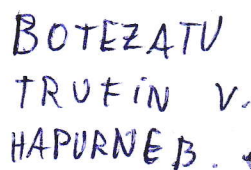 BOTEZATU
TRUFIN V.
HAPURNE B.